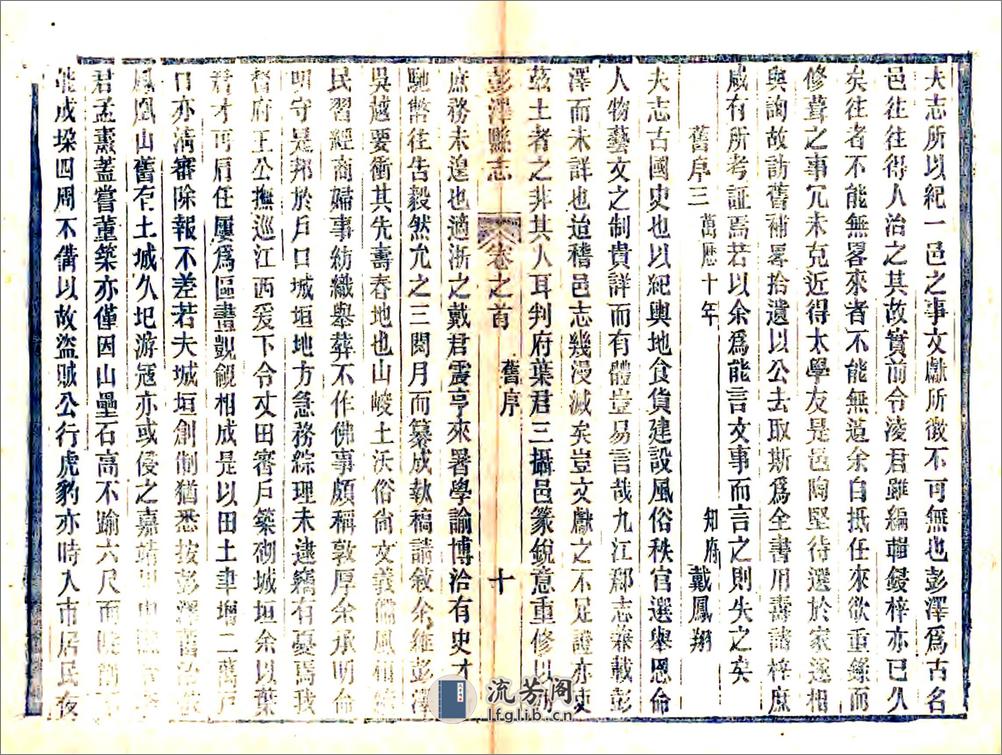 夫志所以紀一邑之事文獻所徵不可無也彭澤爲古名
邑往往得人治之其故實前令淩君雖編輯鋟梓亦已久
矣往者不能無畧來者不能無遺余自抵任來欲重鎸而
修葺之事冗未克近得太學友是邑陶堅待選於家遂相
與詢故訪舊補畧拾遺以公去取斯爲全書用壽諸梓庶
咸有所考証焉若以余爲能言文事而言之則失之矣
舊序三 萬歷十年 知府 戴鳳翔
夫志古國史也以紀輿地食貨建設風俗秩官選舉恩命
人物藝文之制貴詳而有體豈易言哉九江郡志兼載彭
澤而未詳也迨稽邑志幾漫滅矣豈文獻之不足證亦吏
茲土者之非其人耳判府葉君三攝邑篆銳意重修以
彭澤縣志 卷之首 舊序 十
庶務未遑也適浙之戴君震亨來署學諭博洽有史才
馳幣往告毅然允之三閱月而纂成執稿請敘余維彭澤
吳越要衝其先壽春地也山峻土沃俗尚文義儒風相
民習經商婦事紡織舉葬不作佛事頗稱敦厚余承明命
明守是邦於戶口城垣地方急務綜理未逮竊有憂焉我
督府王公撫巡江西爰下令丈田審戶築砌城垣余以葉
君才可肩任屢爲區畫覬覦相成是以田土聿增二萬戶
口亦清審除報不差若夫城垣創制猶悉按彭澤舊治
鳳凰山舊有土城久圯游寇亦或侵之嘉靖
君孟薰蓋嘗董築亦僅因山壘石高不踰六尺而
成垛四周不備以故盜賊公行虎豹亦時入市居民夜